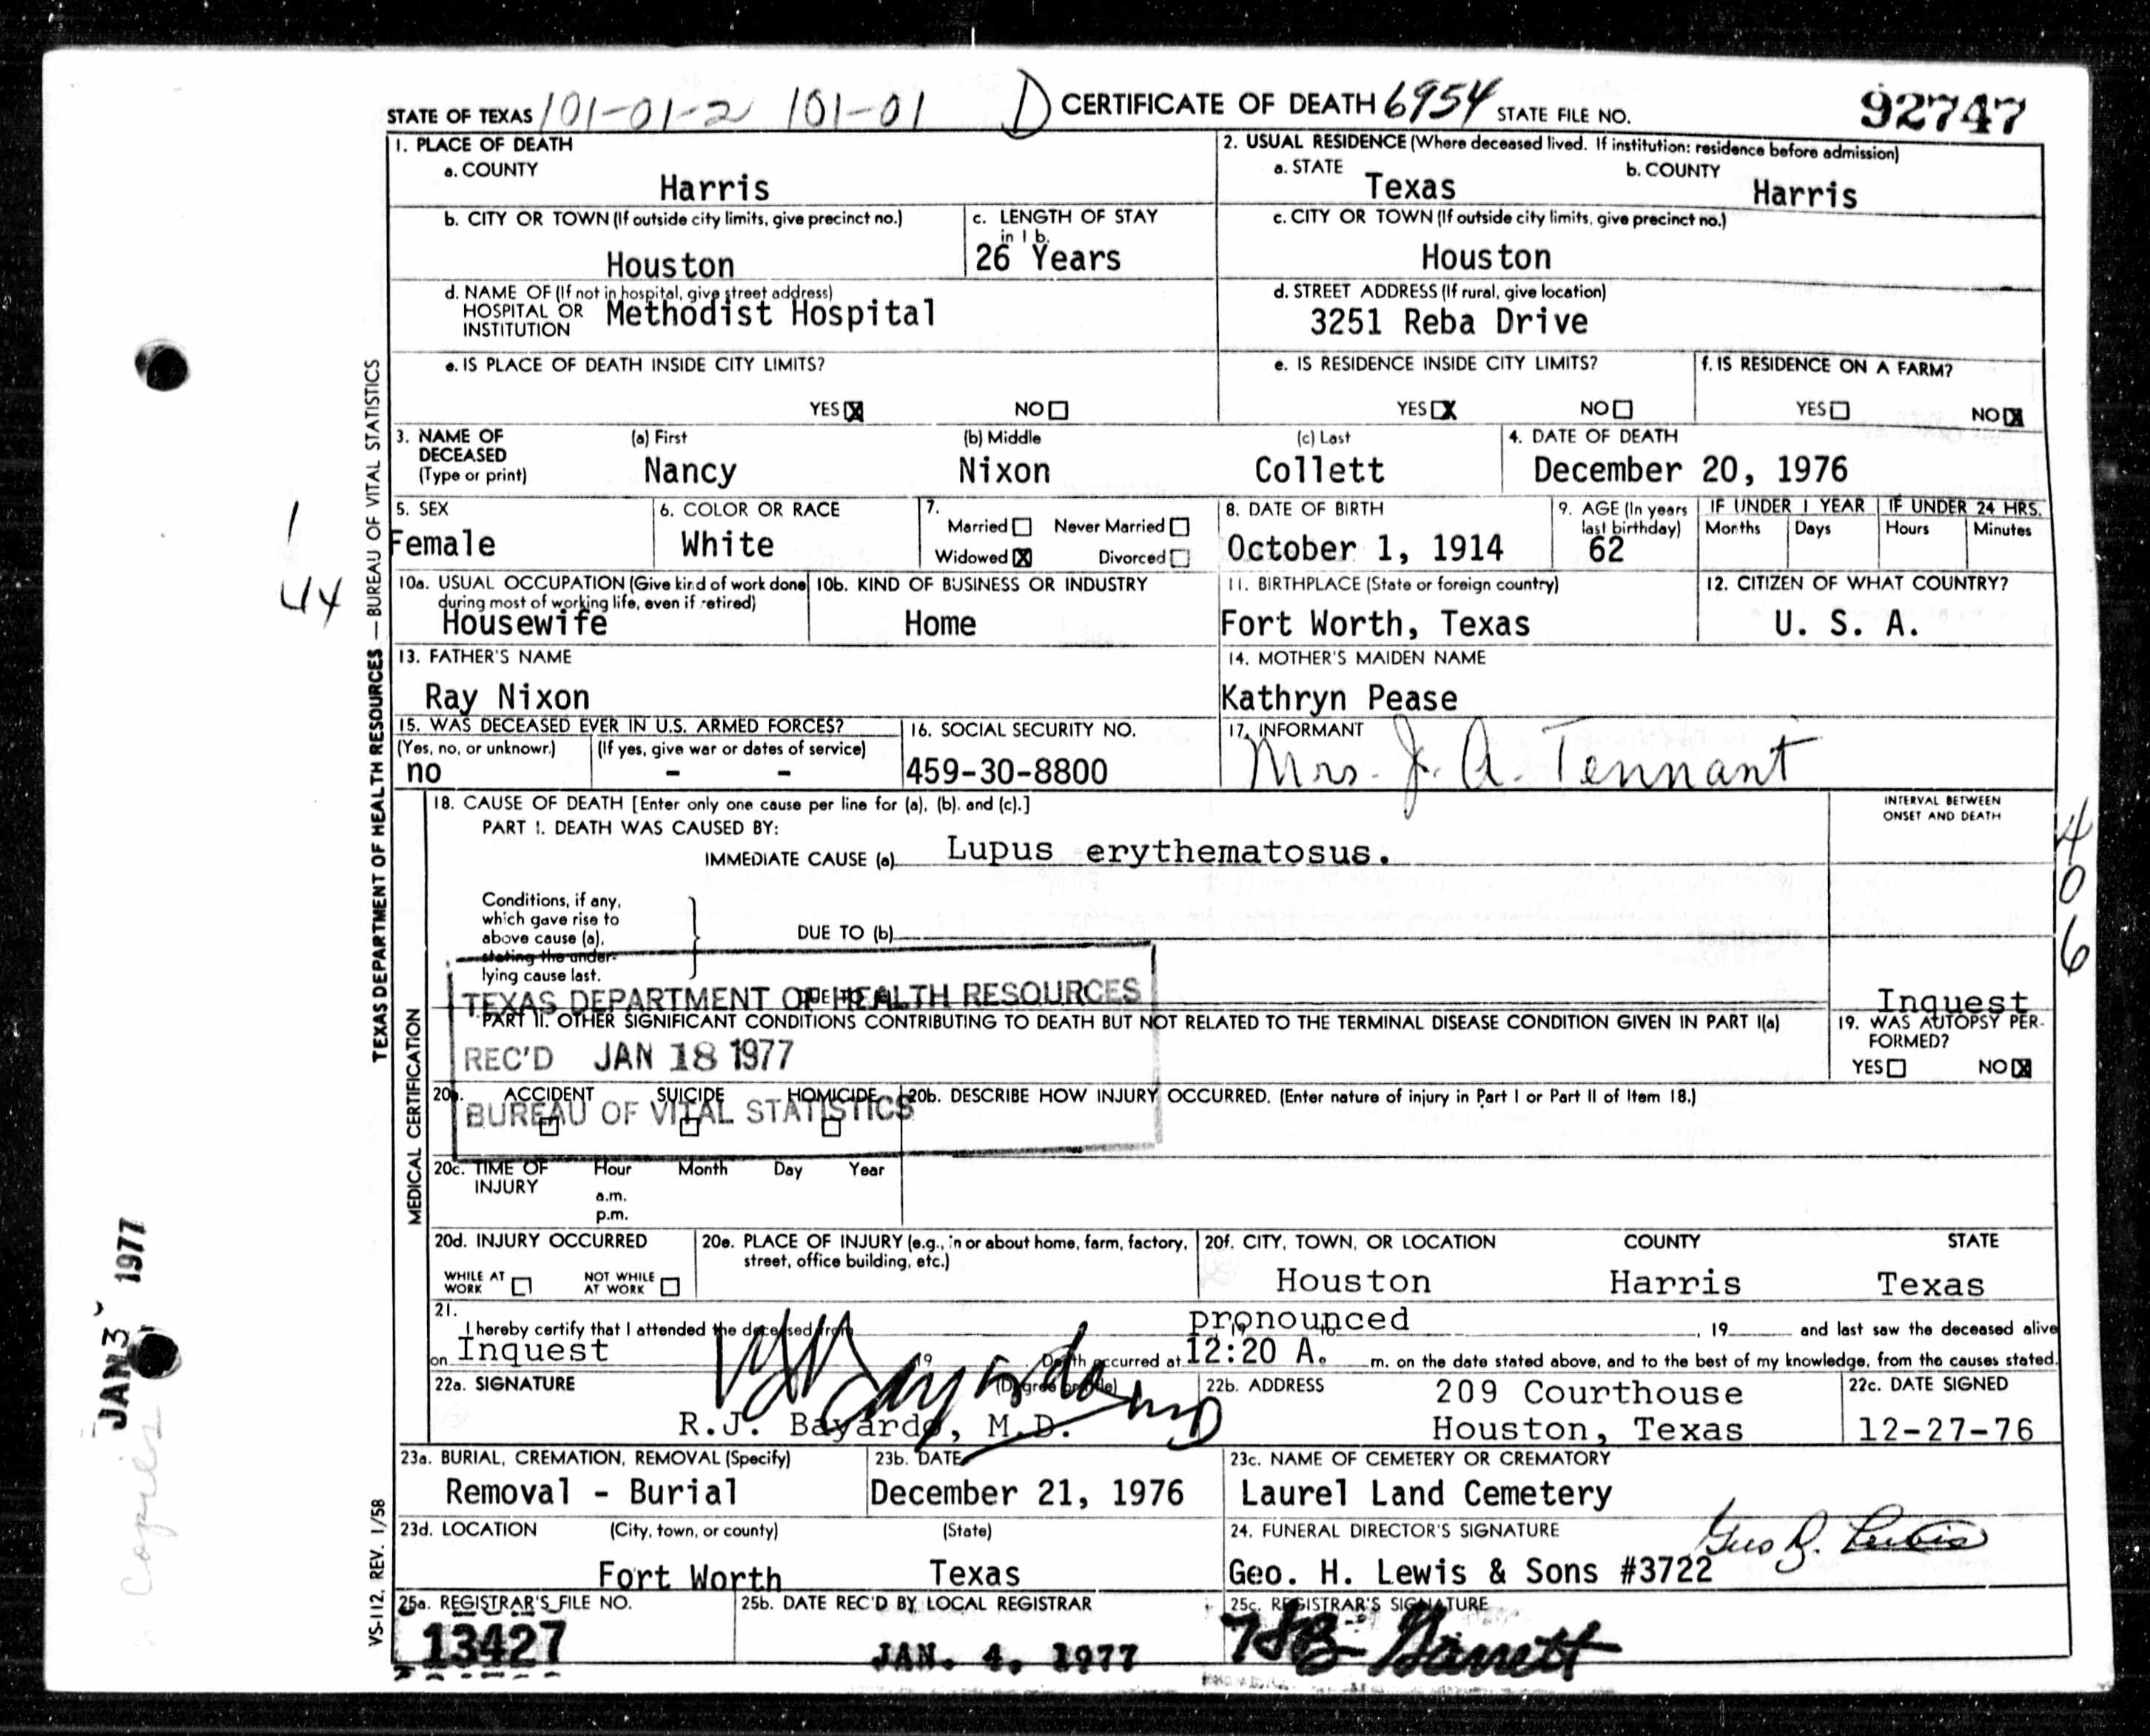 STATE OF TEXAS 101-01-2 101-01 D CERTIFICATE OF DEATH 6954 STATE FILE NO. 92747
1. PLACE OF DEATH
a. COUNTY
Harris
2. USUAL RESIDENCE (Where deceased lived. If institution: residence before admission)
a. STATE Texas b. COUNTY Harris
b. CITY OR TOWN (If outside city limits, give precinct no.)
Houston
c. LENGTH OF STAY
in 1 b.
26 Years
c. CITY OR TOWN (If outside city limits, give precinct no.)
Houston
d. NAME OF (If not in hospital, give street address)
HOSPITAL OR
INSTITUTION
Methodist Hospital
d. STREET ADDRESS (If rural, give location)
3251 Reba Drive
e. IS PLACE OF DEATH INSIDE CITY LIMITS?
YES X NO
e. IS RESIDENCE INSIDE CITY LIMITS?
YES X NO
f. IS RESIDENCE ON A FARM?
YES NO X
3. NAME OF
DECEASED
(Type or print)
(a) First (b) Middle (c) Last
Nancy Nixon Collett
4. DATE OF DEATH
December 20, 1976
5. SEX
Female
6. COLOR OR RACE
White
7.
Married Never Married
Widowed X Divorced
8. DATE OF BIRTH
October 1, 1914
9. AGE (In years
last birthday)
62
IF UNDER 1 YEAR
Months Days
IF UNDER 24 HRS.
Hours Minutes
10a. USUAL OCCUPATION (Give kind of work done
during most of working life, even if retired)
Housewife
10b. KIND OF BUSINESS OR INDUSTRY
Home
11. BIRTHPLACE (State or foreign country)
Fort Worth, Texas
12. CITIZEN OF WHAT COUNTRY?
U. S. A.
13. FATHER'S NAME
Ray Nixon
14. MOTHER'S MAIDEN NAME
Kathryn Pease
15. WAS DECEASED EVER IN U.S. ARMED FORCES?
(Yes, no, or unknown) (If yes, give war or dates of service)
no - -
16. SOCIAL SECURITY NO.
459-30-8800
17. INFORMANT
Mrs. J. A. Tennant
18. CAUSE OF DEATH [Enter only one cause per line for (a), (b), and (c).]
PART I. DEATH WAS CAUSED BY:
IMMEDIATE CAUSE (a) Lupus erythematosus.
INTERVAL BETWEEN
ONSET AND DEATH
Conditions, if any,
which gave rise to
above cause (a),
stating the under-
lying cause last.
DUE TO (b)
DUE TO
TEXAS DEPARTMENT OF HEALTH RESOURCES
REC'D JAN 18 1977
BUREAU OF VITAL STATISTICS
PART II. OTHER SIGNIFICANT CONDITIONS CONTRIBUTING TO DEATH BUT NOT RELATED TO THE TERMINAL DISEASE CONDITION GIVEN IN PART I(a)
Inquest
19. WAS AUTOPSY PER-
FORMED?
YES NO X
20a. ACCIDENT SUICIDE HOMICIDE
20b. DESCRIBE HOW INJURY OCCURRED. (Enter nature of injury in Part I or Part II of Item 18.)
20c. TIME OF
INJURY
Hour Month Day Year
a.m.
p.m.
20d. INJURY OCCURRED
WHILE AT
WORK
NOT WHILE
AT WORK
20e. PLACE OF INJURY (e.g., in or about home, farm, factory,
street, office building, etc.)
20f. CITY, TOWN, OR LOCATION COUNTY STATE
Houston Harris Texas
21.
pronounced
I hereby certify that I attended the deceased from 19 to , 19 and last saw the deceased alive
on Inquest 19 Death occurred at 12:20 A. m. on the date stated above, and to the best of my knowledge, from the causes stated.
22a. SIGNATURE (Degree or title)
R.J. Bayardo, M.D.
22b. ADDRESS
209 Courthouse
Houston, Texas
22c. DATE SIGNED
12-27-76
23a. BURIAL, CREMATION, REMOVAL (Specify)
Removal - Burial
23b. DATE
December 21, 1976
23c. NAME OF CEMETERY OR CREMATORY
Laurel Land Cemetery
23d. LOCATION (City, town, or county) (State)
Fort Worth Texas
24. FUNERAL DIRECTOR'S SIGNATURE
Geo. H. Lewis & Sons #3722
25a. REGISTRAR'S FILE NO.
13427
25b. DATE REC'D BY LOCAL REGISTRAR
JAN. 4, 1977
25c. REGISTRAR'S SIGNATURE
TEXAS DEPARTMENT OF HEALTH RESOURCES — BUREAU OF VITAL STATISTICS
MEDICAL CERTIFICATION
VS-112, REV. 1/58
1
44
406
JAN 3 1977
Copies